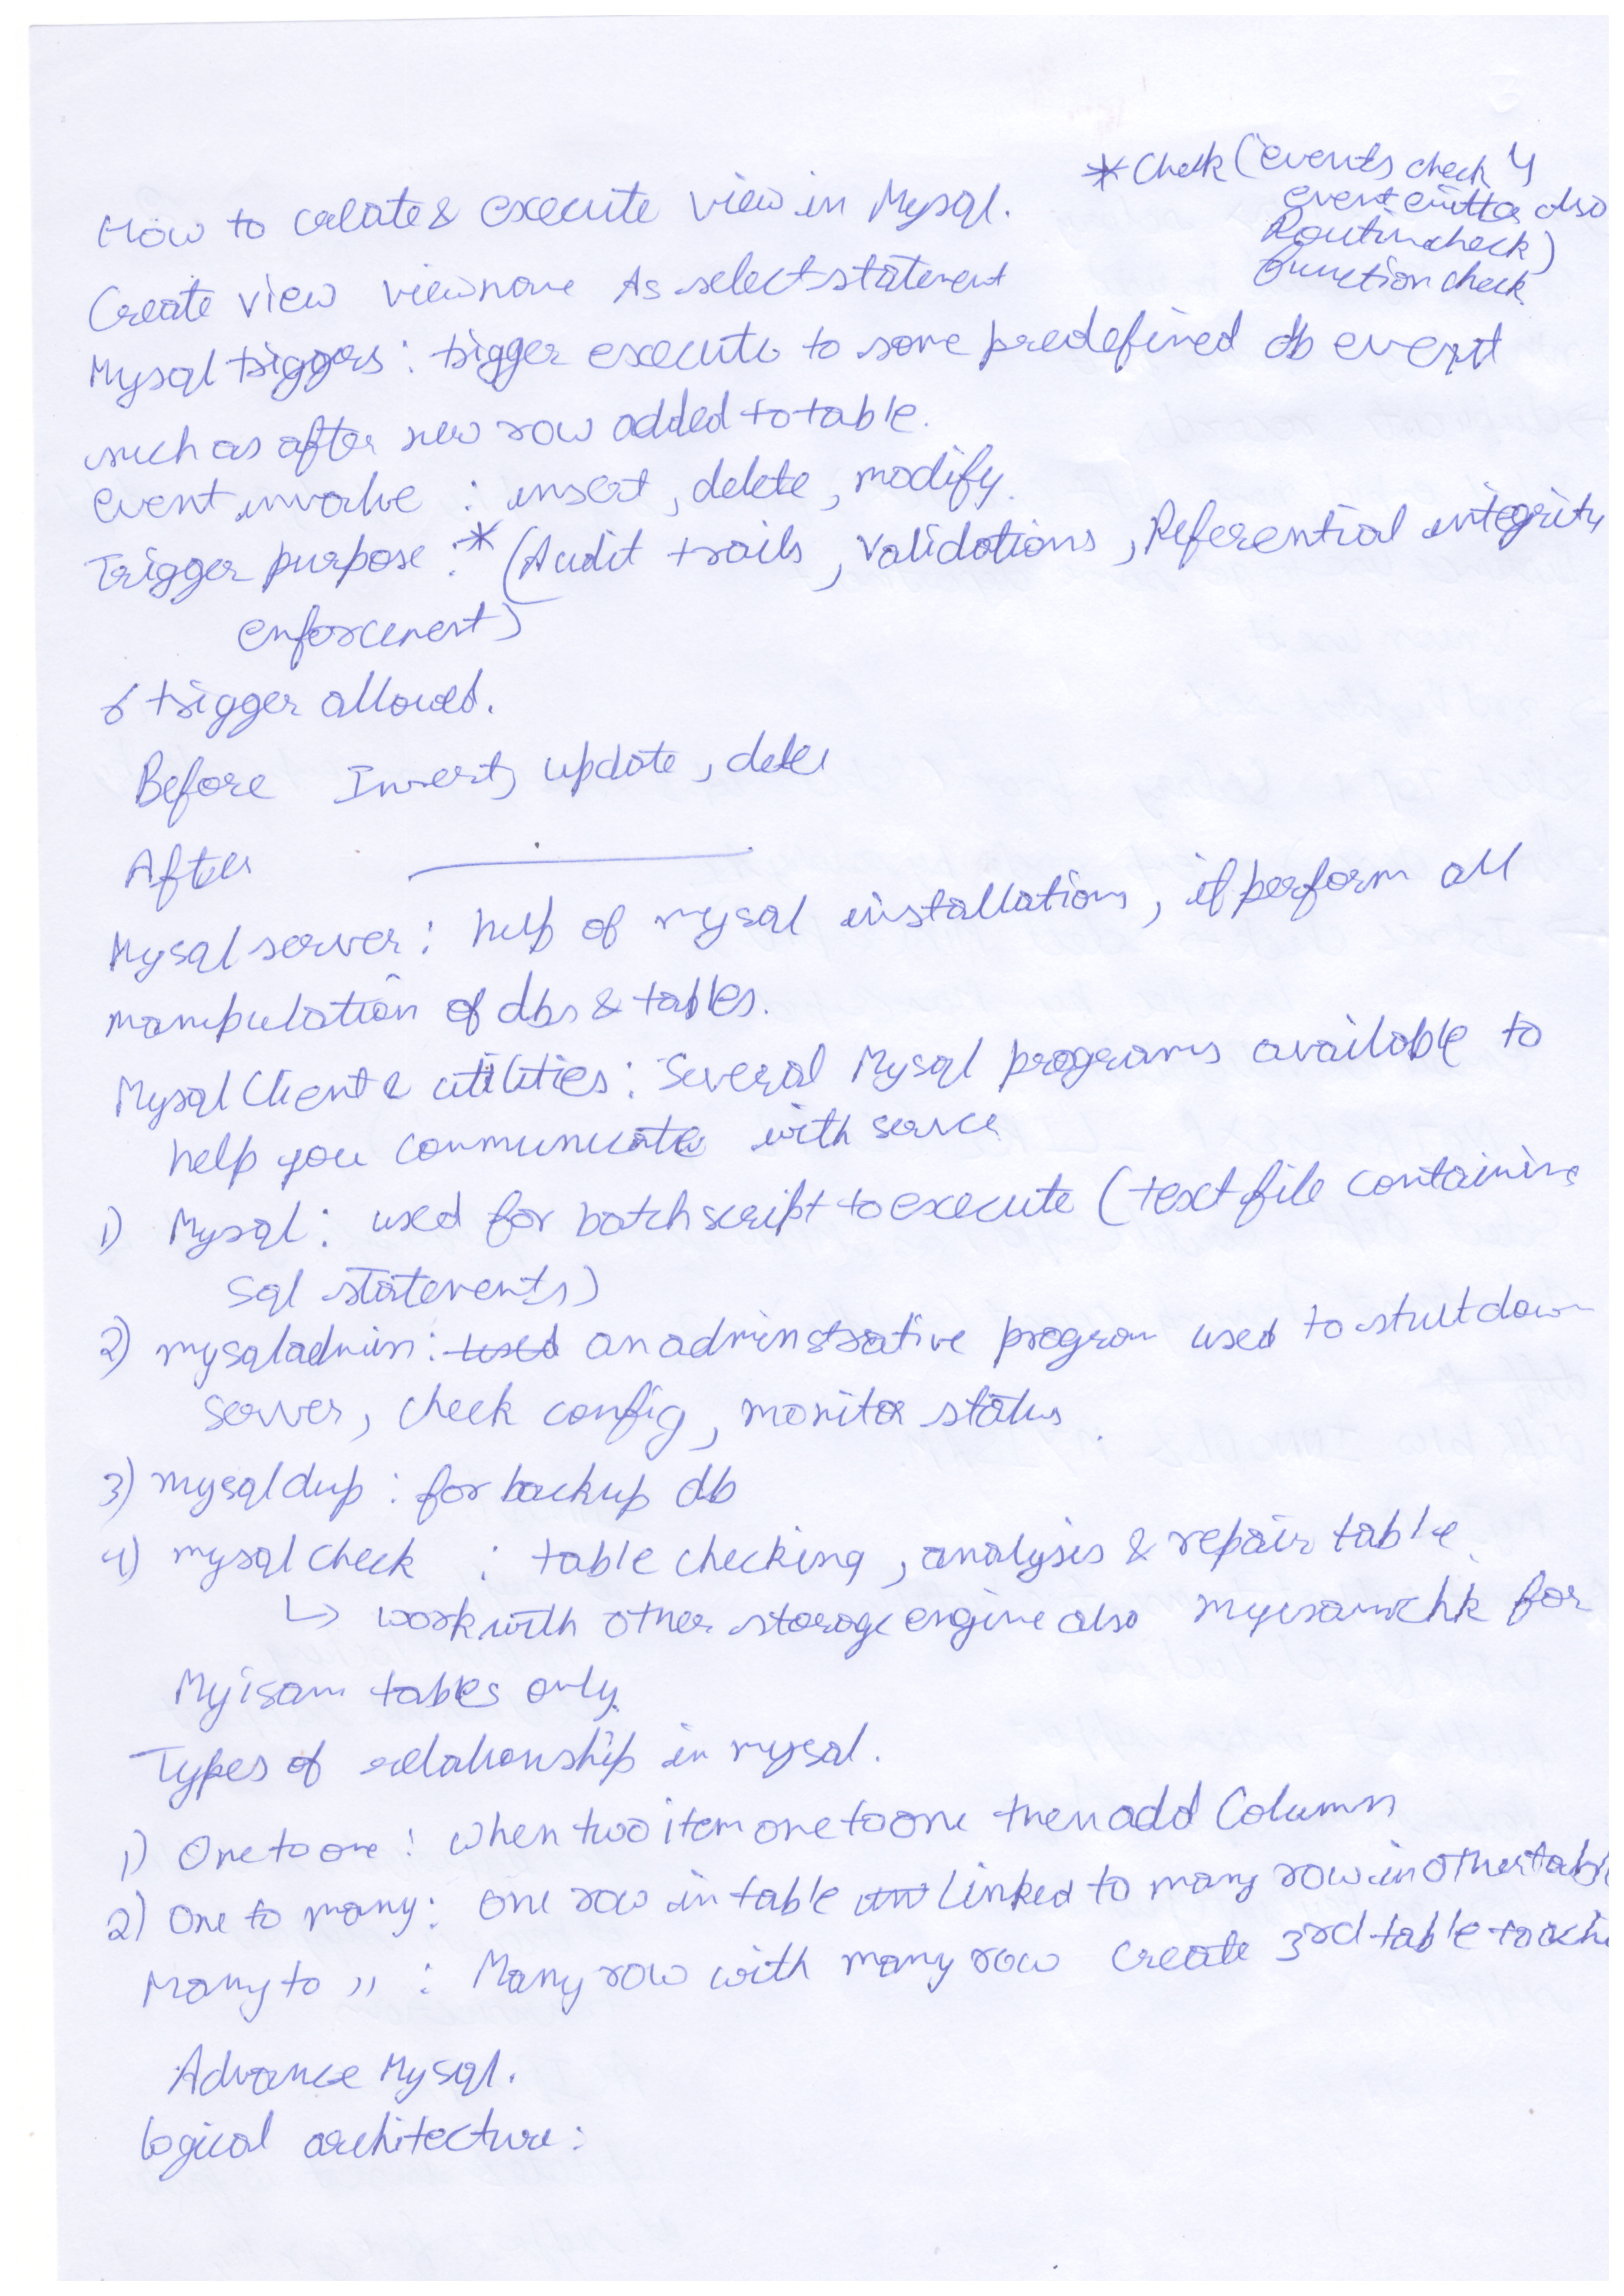 * Check (events check 4
event emitter also
Routin check)
function check
How to create & execute view in Mysql.
Create view viewname As select statement
Mysql triggers : trigger execute to some predefined db event
such as after new row added to table.
event involve : insert, delete, modify.
Trigger purpose : * (Audit trails, Validations, Referential integrity
enforcement)
6 trigger allowed.
Before Insert, update, delet
After
Mysql server : help of mysql installations, it perform all
manipulation of dbs & tables.
Mysql Client & utilities : Several Mysql programs available to
help you communicate with server
1) Mysql : used for batch script to execute (text file containing
Sql statements)
2) mysqladmin : used an adminstrative program used to shutdown
server, check config, monitor status.
3) mysqldup : for backup db
4) mysqlcheck : table checking, analysis & repair table.
↳ work with other storage engine also myisamchk for
Myisam tables only.
Types of relationship in mysql.
1) One to one : when two item one to one then add Column
2) One to many : one row in table linked to many row in other tabl
Many to ,, : Many row with many row create 3rd table to
Advance Mysql.
Logical architecture :